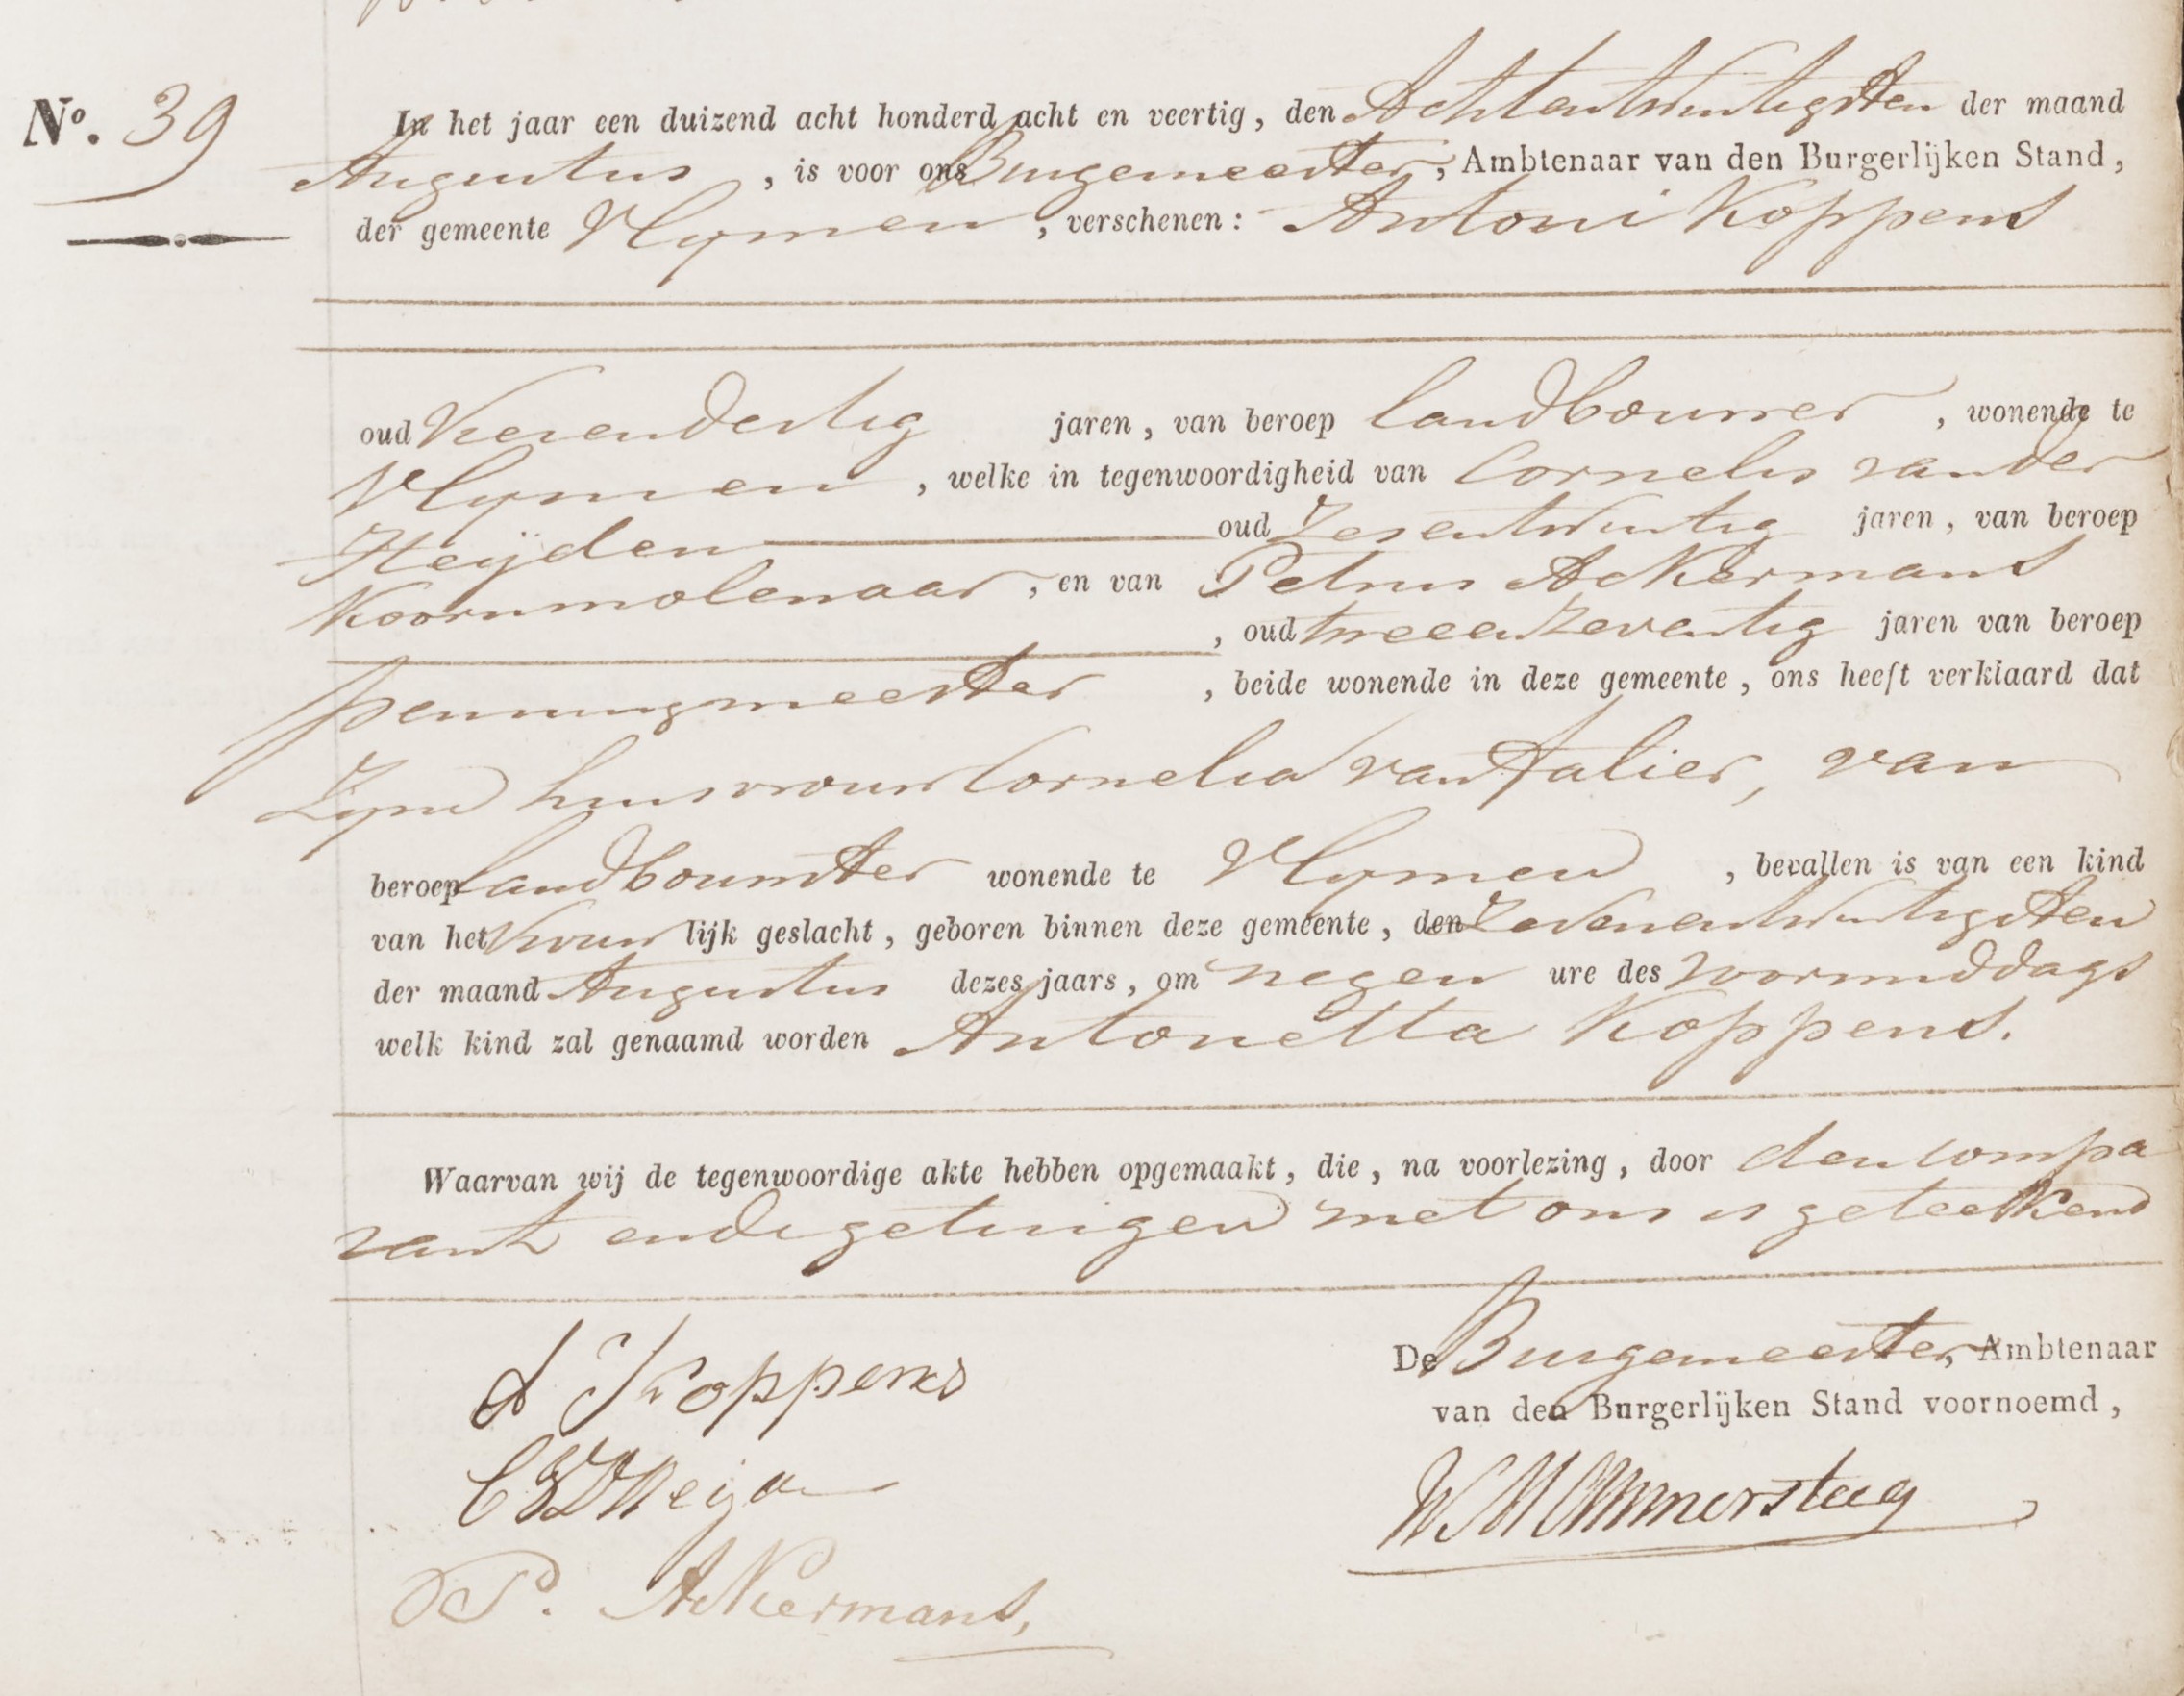 Nº. 39
In het jaar een duizend acht honderd acht en veertig, den Achtentwintigsten der maand
Augustus , is voor ons Burgemeester, Ambtenaar van den Burgerlijken Stand,
der gemeente Vlymen , verschenen: Antoni Koppens
oud Vierendertig jaren, van beroep landbouwer , wonende te
Vlymen , welke in tegenwoordigheid van Cornelis vander
Heÿden oud Zesentwintig jaren, van beroep
Koornmolenaar , en van Petrus Ackermans
, oud tweeenzeventig jaren van beroep
penningmeester , beide wonende in deze gemeente, ons heeft verklaard dat
Zyne huisvrouw Cornelia van Falier, van
beroep landbouwster wonende te Vlymen , bevallen is van een kind
van het Vrouw lijk geslacht, geboren binnen deze gemeente, den Zevenentwintigsten
der maand Augustus dezes jaars, om negen ure des voormiddags
welk kind zal genaamd worden Antonetta Koppens.
Waarvan wij de tegenwoordige akte hebben opgemaakt, die, na voorlezing, door den compa
rant en de getuigen met ons is geteekend
A Koppens
De Burgemeester, Ambtenaar
van den Burgerlijken Stand voornoemd,
P. Ackermans,